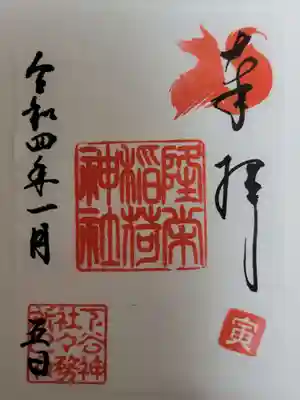 奉拝
寅
隆栄
稲荷
神社
令和四年一月
五日
下谷神
社々務
所